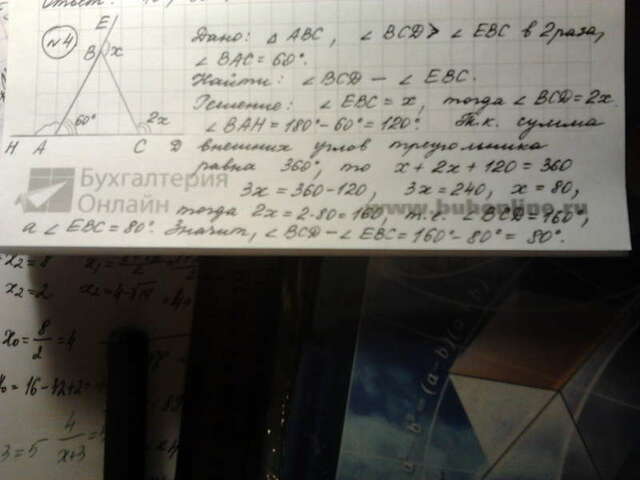 Ответ:
№4
E
B x
60°
2x
H A C D
Дано: △ ABC, ∠ BCD > ∠ EBC в 2 раза,
∠ BAC = 60°.
Найти: ∠ BCD − ∠ EBC.
Решение: ∠ EBC = x, тогда ∠ BCD = 2x.
∠ BAH = 180° − 60° = 120°. Т.к. сумма
внешних углов треугольника
равна 360°, то x + 2x + 120 = 360
3x = 360 − 120, 3x = 240, x = 80,
тогда 2x = 2·80 = 160, т.е. ∠ BCD = 160°,
а ∠ EBC = 80°. Значит, ∠ BCD − ∠ EBC = 160° − 80° = 80°.
Бухгалтерия
Онлайн
www.buhonline.ru
x2 = 8
x2 = 2
x0 = 8/2 = 4
= 16 − 42 + 2 =
3 = 5 4/x+3